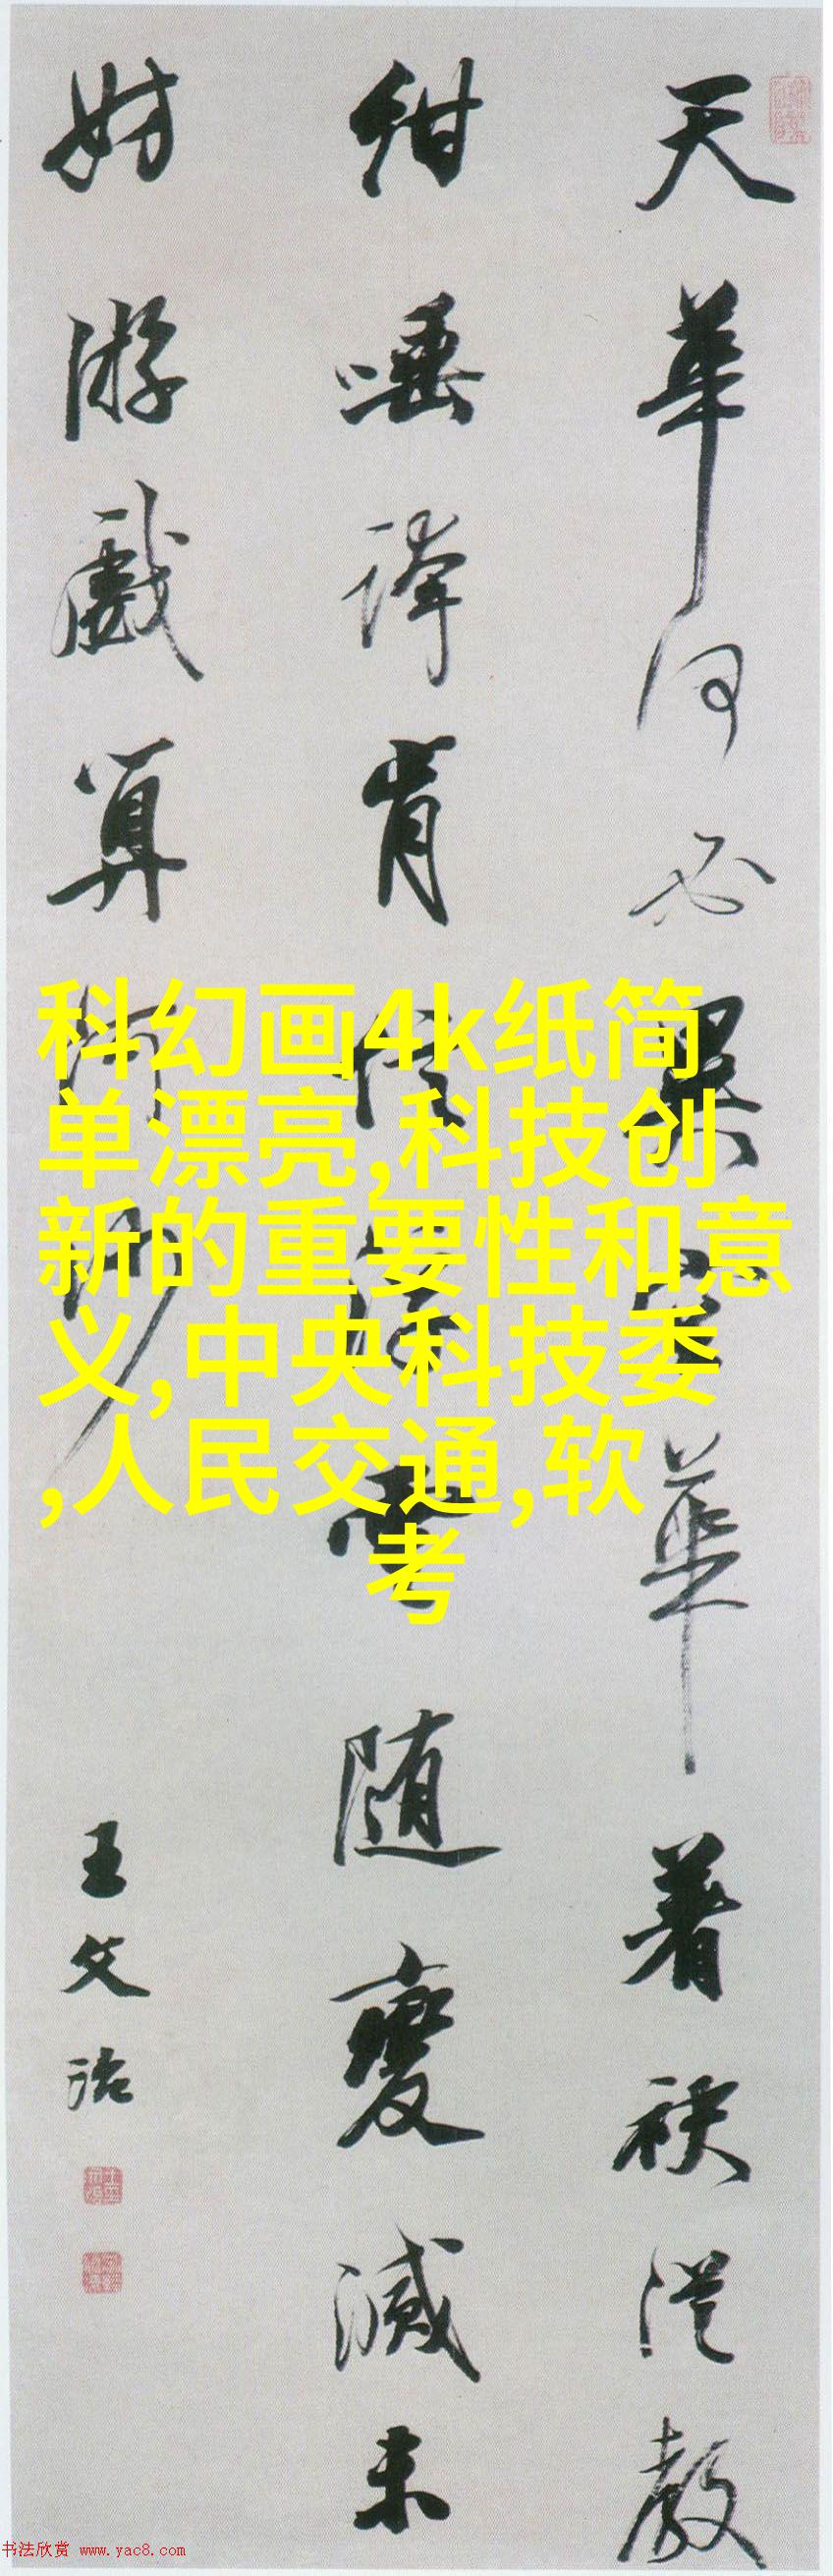 天華何必異空華著袂從教
紺唾渾肯信浮雲随變滅未
妨游戲算河沙
王文治
科幻画4k纸简
单漂亮,科技创
新的重要性和意
义,中央科技委
,人民交通,软
考
书法欣赏 www.yac8.com